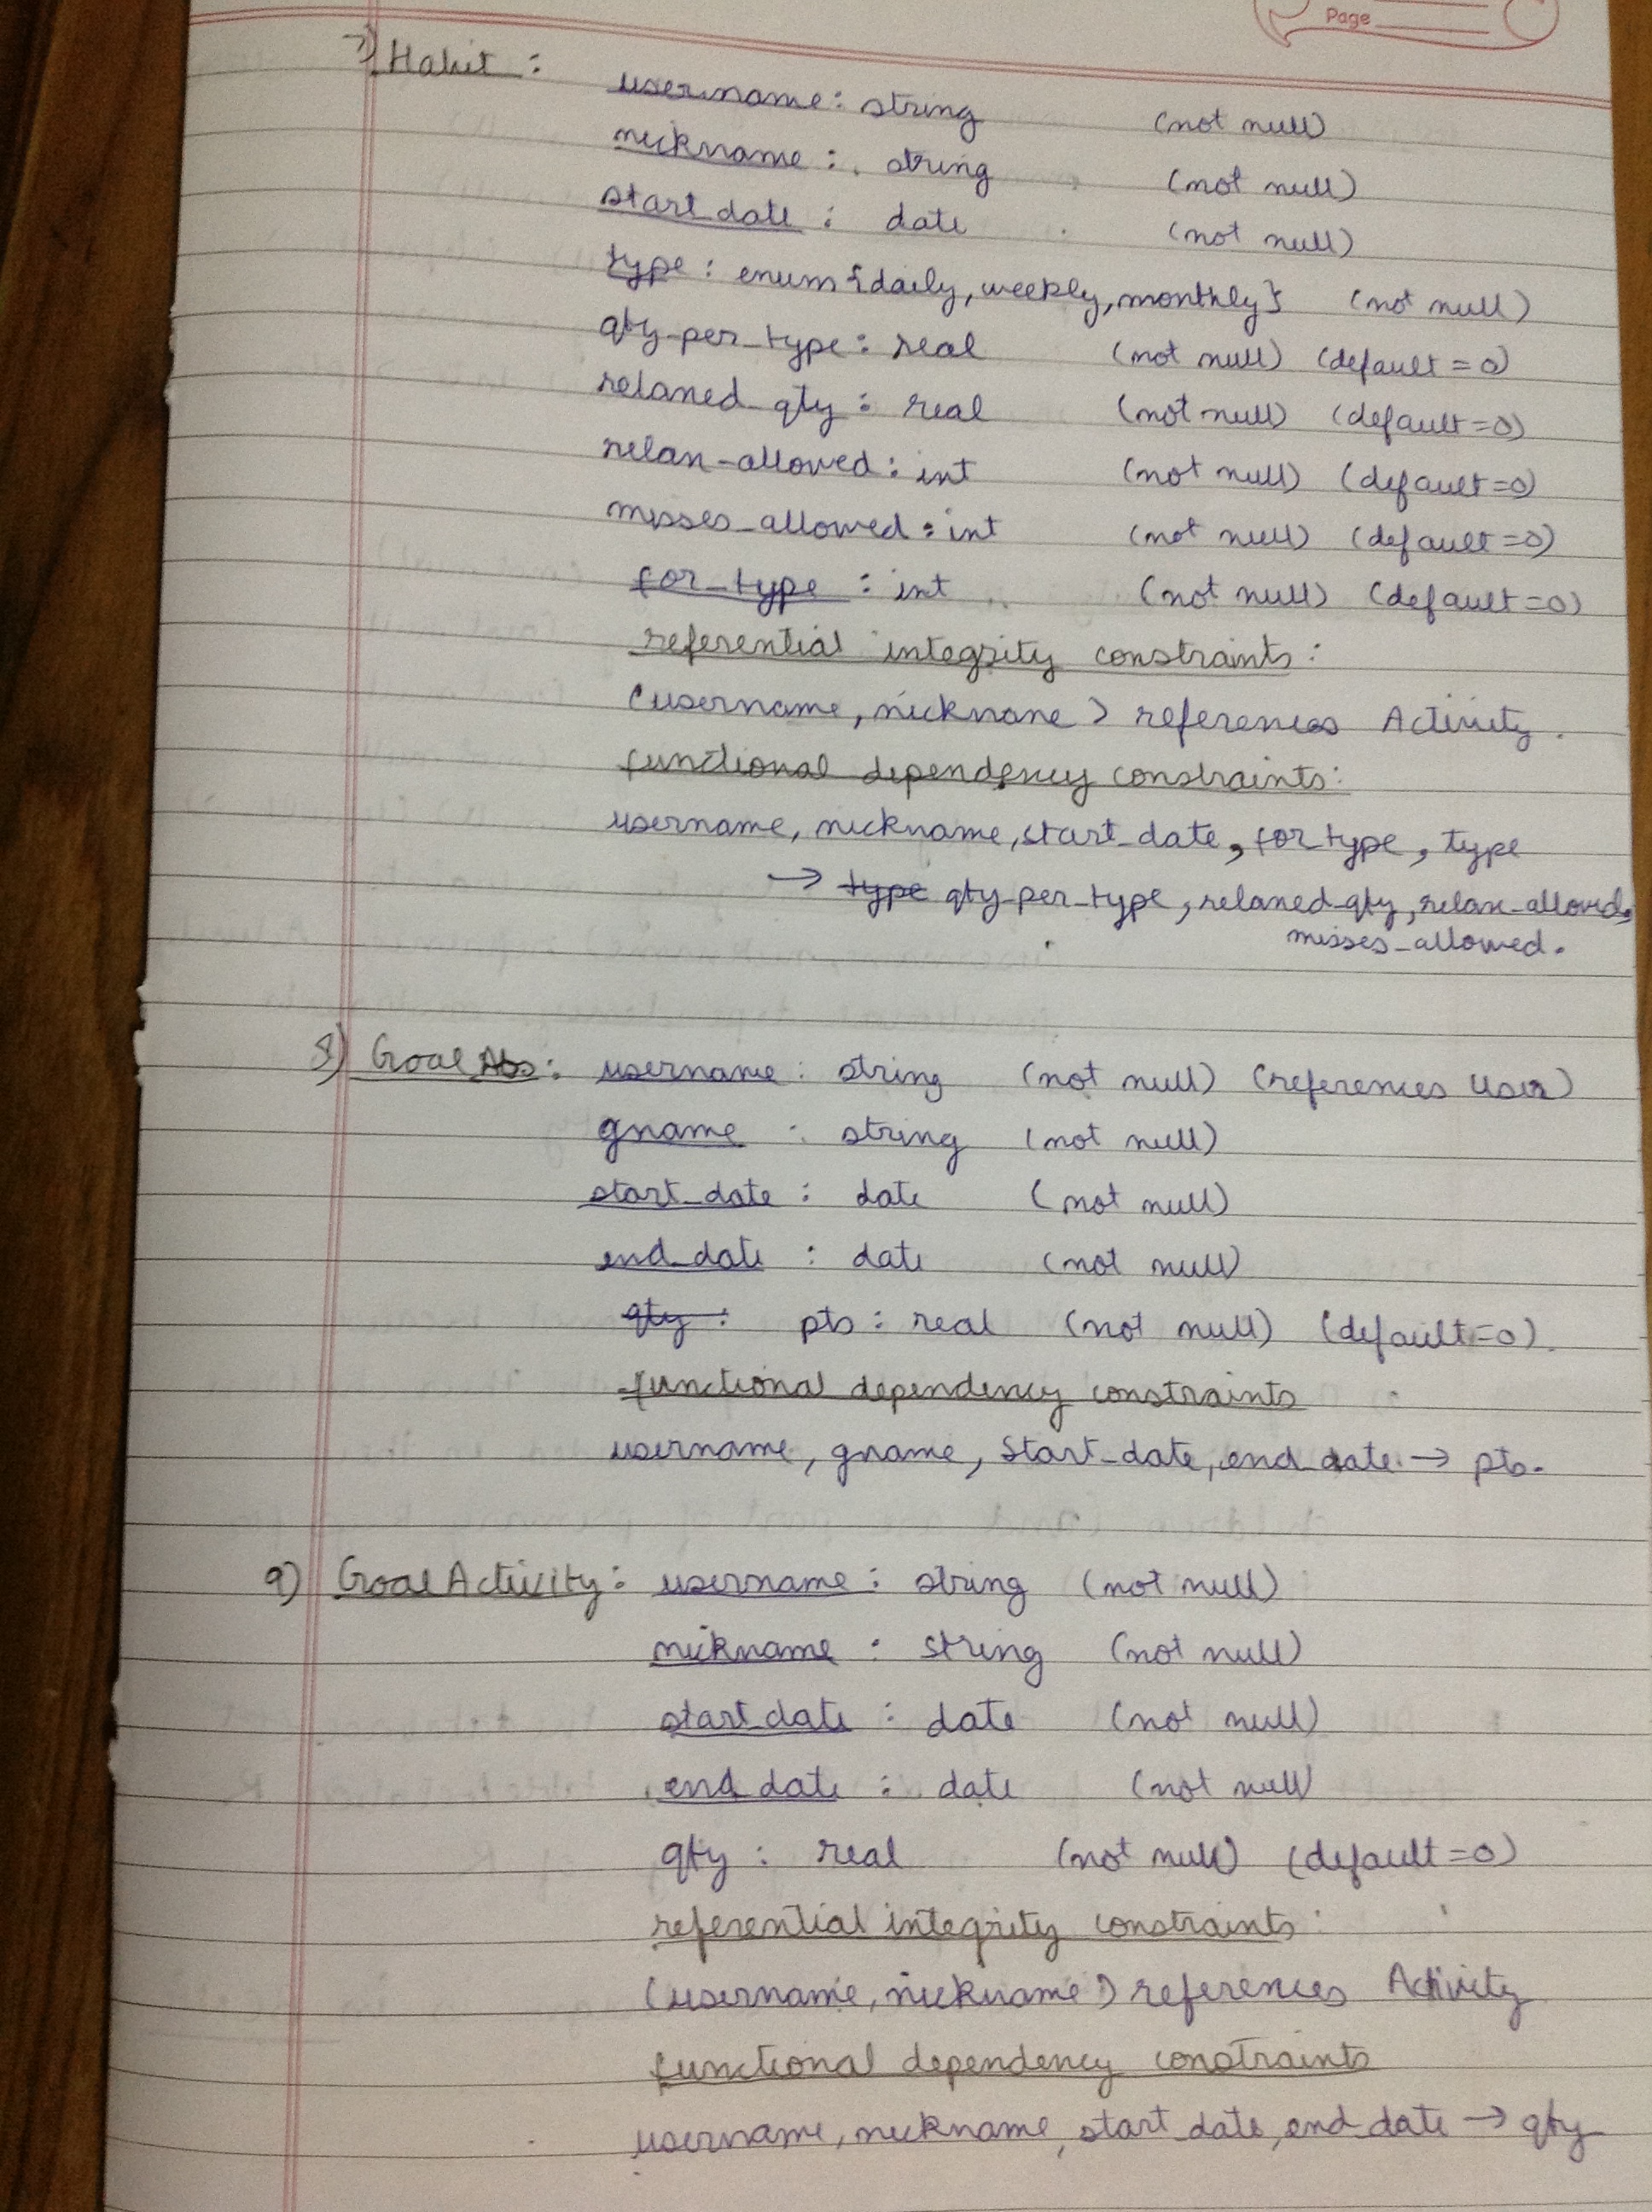 Page
7) Habit :
username : string (not null)
nickname : string (not null)
start_date : date (not null)
type : enum {daily, weekly, monthly} (not null)
qty_per_type : real (not null) (default = 0)
relaxed_qty : real (not null) (default=0)
relax_allowed : int (not null) (default=0)
misses_allowed : int (not null) (default=0)
for_type : int (not null) (default=0)
referential integrity constraints :
(username, nickname) references Activity.
functional dependency constraints :
username, nickname, start_date, for_type, type
→ type qty_per_type, relaxed_qty, relax_allowed,
misses_allowed.
8) GoalAbs : username : string (not null) (references User)
gname : string (not null)
start_date : date (not null)
end_date : date (not null)
qty : pts : real (not null) (default=0).
functional dependency constraints
username, gname, start_date, end_date → pts.
9) GoalActivity : username : string (not null)
nickname : string (not null)
start_date : date (not null)
end_date : date (not null)
qty : real (not null) (default=0)
referential integrity constraints :
(username, nickname) references Activity
functional dependency constraints
username, nickname, start_date, end_date → qty